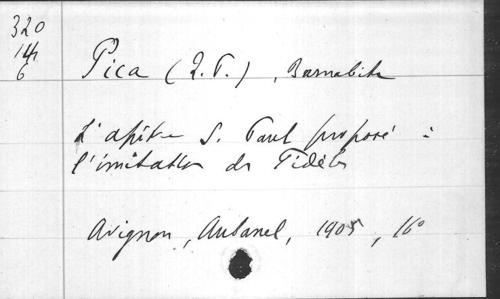 320
14
6
Pica (I. T.), Barnabite
L'apôtre S. Paul proposé à
l'imitation des Fidèles
Avignon, Aubanel, 1905, 16º